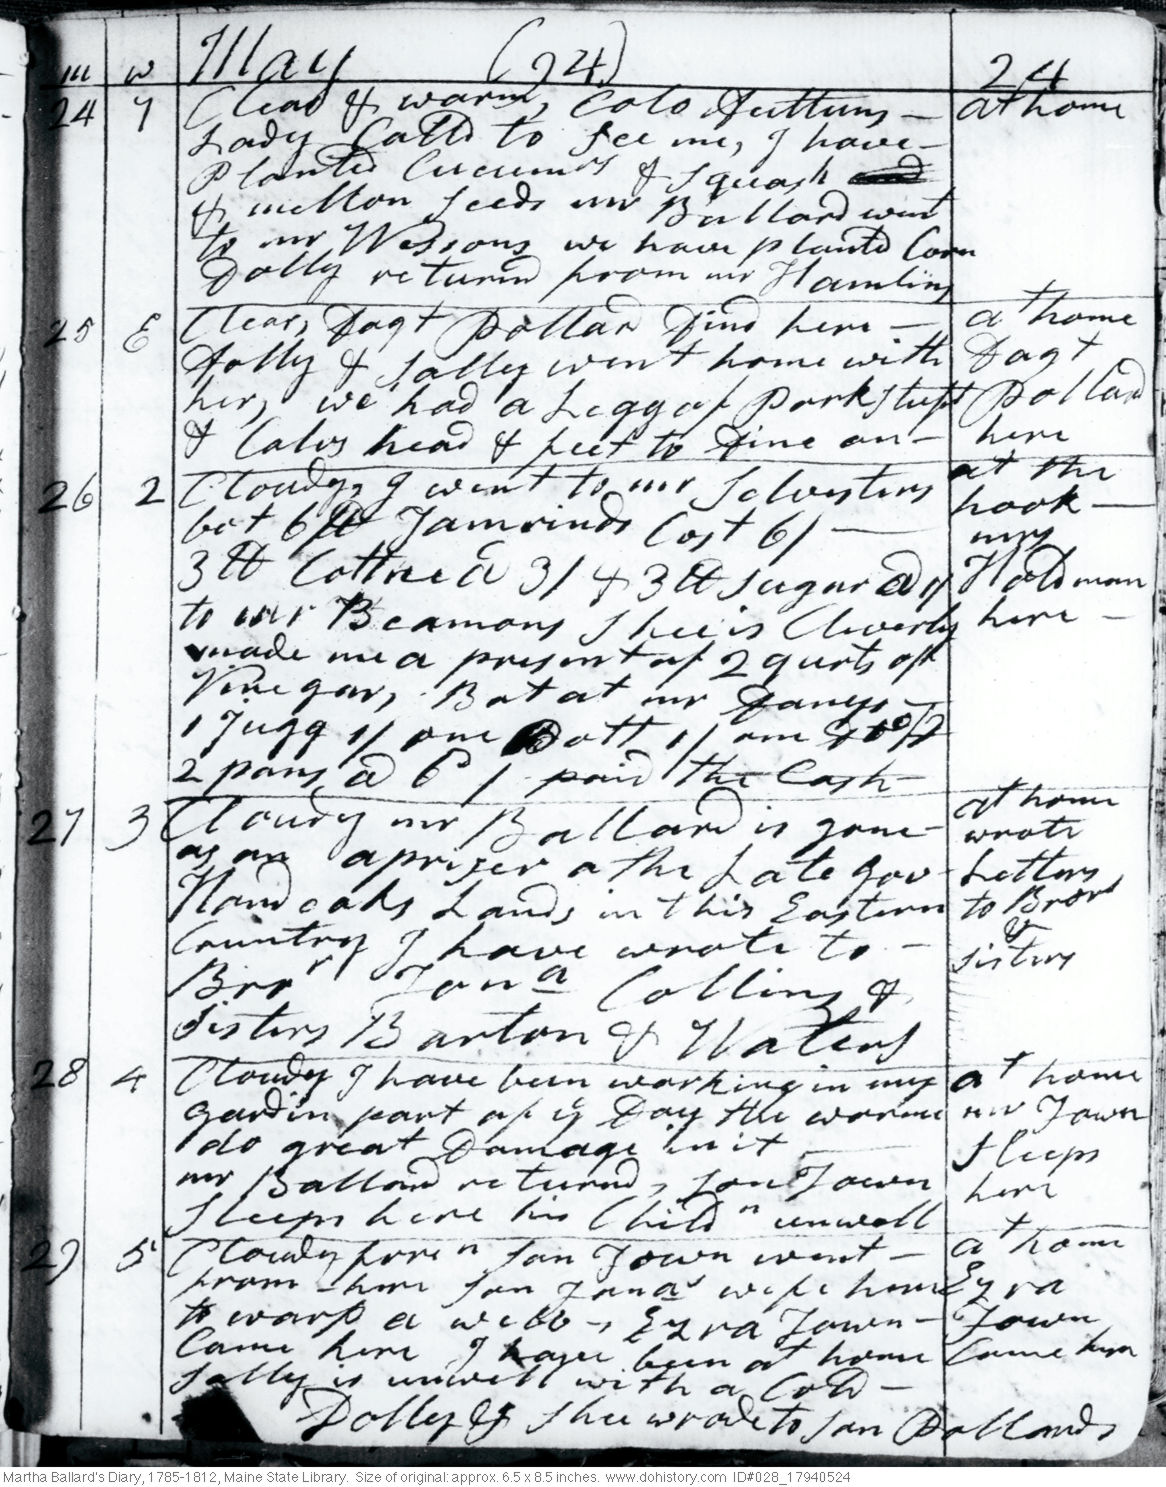 m w May (24) 24
24 7 Clear & warm, Colo Duttuns - at home
Lady Calld to See me, I have -
Planted Cucumrs & Squash and
& mellon Seeds mr Ballard went
to mr Wessons we have plantd Corn
Dolly returnd from mr Hamlins
25 E Clear, Dagt Pollard Dind here - at home
Dolly & Sally went home with Dagt
her, we had a Legg of Pork Stufft Pollard
& Calvs head & feet to Dine on - here
26 2 Cloudy, I went to mr Selvesters at the
bot 6 lb Tamrinds Cost 6/ - hook -
3 lb Cottne @ 3/ & 3 lb Sugar @ mrs
to mr Beamons Shee is Cleverly Holdman
made me a present of 2 qurts of here -
Vinegar, Bot at mr Daveys -
1 Jugg 1/ one Bott 1/ one
2 pans @ 6 / paid the Cash
27 3 Cloudy mr Ballard is gone - at home
as an apriser a the Late Gov wrote
Handcoks Lands in this Eastern Letters
Country I have wrote to - to Bror
Bror Jona Collins & &
Sisters Barton & Waters sisters
28 4 Cloudy I have been working in my at home
gardin part of ye Day the worms mr Town
do great Damage in it Sleeps
mr Ballard returnd, Son Town here
Sleeps here his Childn unwell
29 5 Cloudy foren Son Town went - at home
from here Son Jonas wife here Ezra
to warp a webb, Ezra Town - Town
Came here I have been at home Came here
Sally is unwell with a Cold -
Dolly & Shee wrode to Son Pollards
Martha Ballard's Diary, 1785-1812, Maine State Library. Size of original: approx. 6.5 x 8.5 inches. www.dohistory.com ID#028_17940524